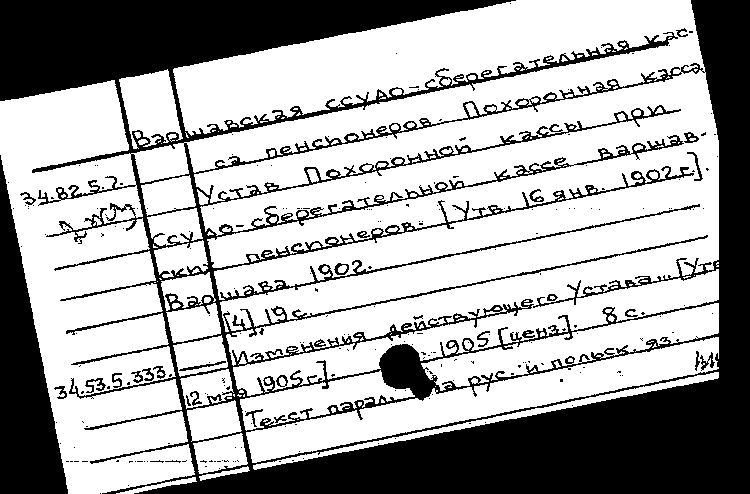 Варшавская ссудо-сберегательная кас-
са пенсионеров. Похоронная касса
34.82.5.2. Устав Похоронной кассы при
Ссудо-сберегательной кассе варшав-
ских пенсионеров. [Утв. 16 янв. 1902 г.].
Варшава, 1902.
[4], 19 с.
34.53.5.333. — Изменения действующего Устава... [Утв.
12 мая 1905 г.]. 1905 [ценз.]. 8 с.
Текст парал. на рус. и польск. яз.